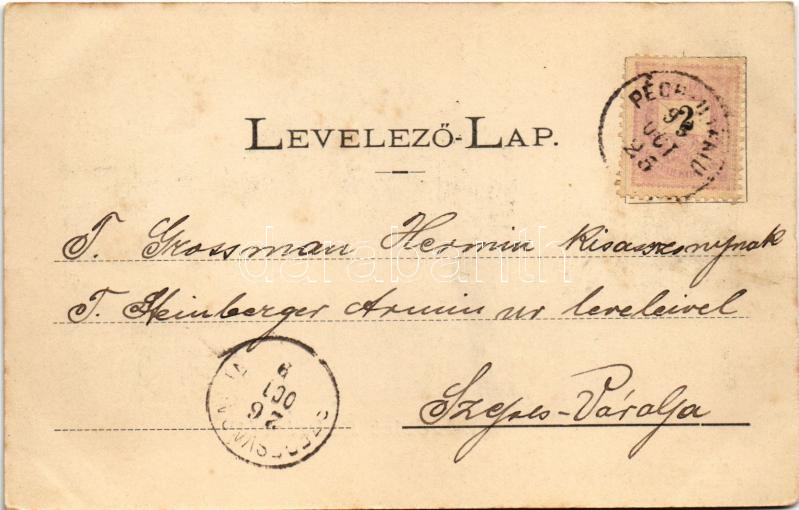 LEVELEZŐ-LAP.
2
OCT
25
T. Grossman Hermin kisasszonynak
T. Steinberger Armin ur leveleivel
Szepes-Váralja
OCT
26
darabanth